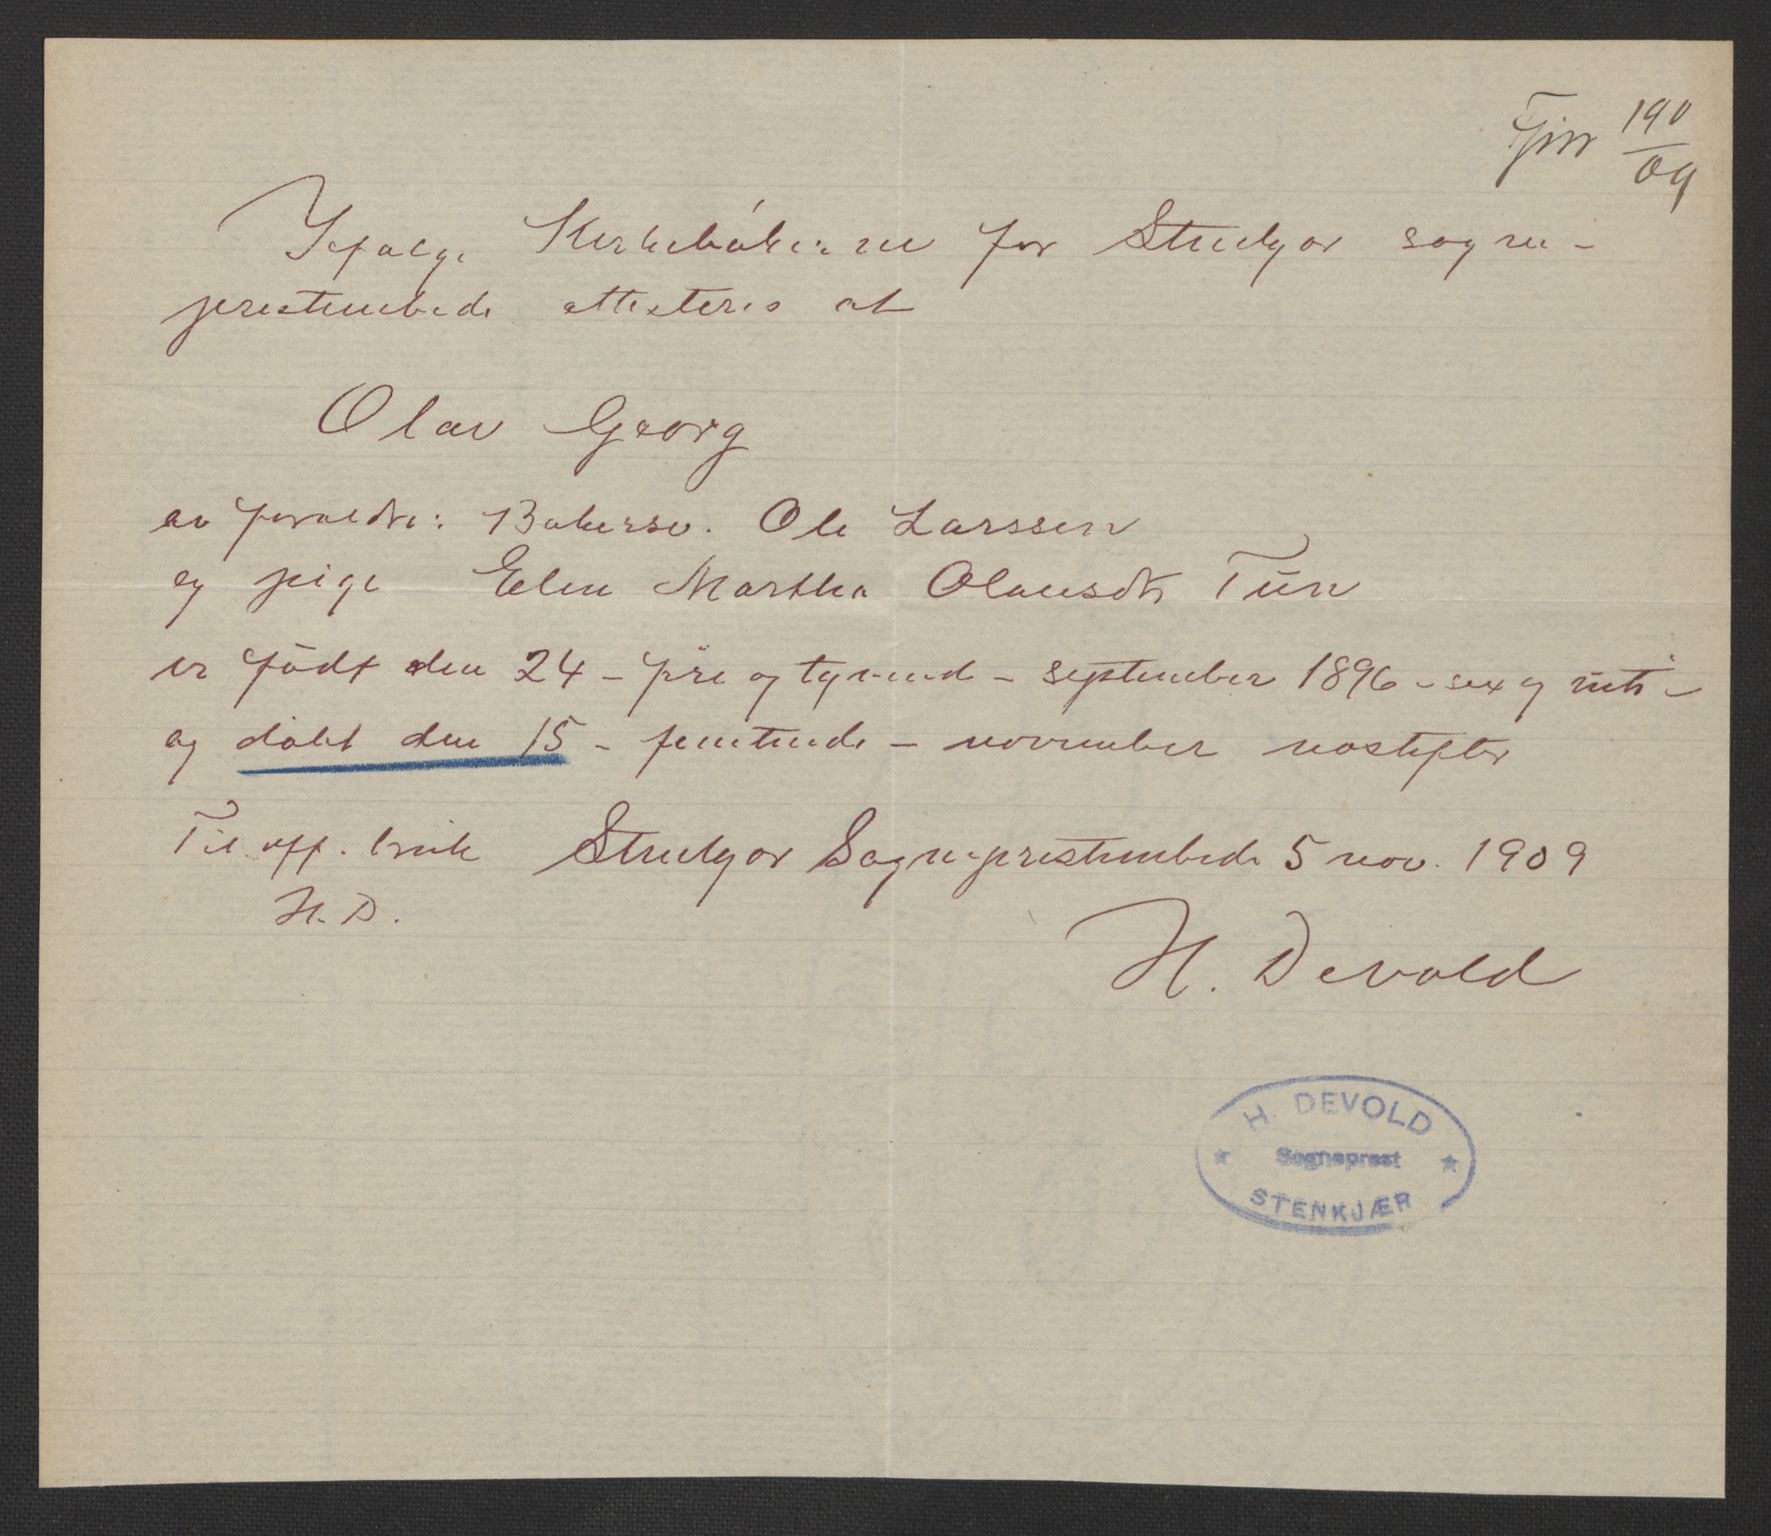 190
09
Ifølge Kirkebøkerne for Stenkjær sogne-
prestembede attesteres at
Olav Georg
av forældre: Bakersv. Ole Larssen
og pige Elen Martha Olausdtr
er født den 24 - fire og tyvende - september 1896 - sex og nitti -
og døbt den 15 - femtende - november næstefter
Til off. bruk Sogneprestembede 5 nov. 1909
H. D.
H. Devold
H. DEVOLD
Sogneprest
STENKJÆR